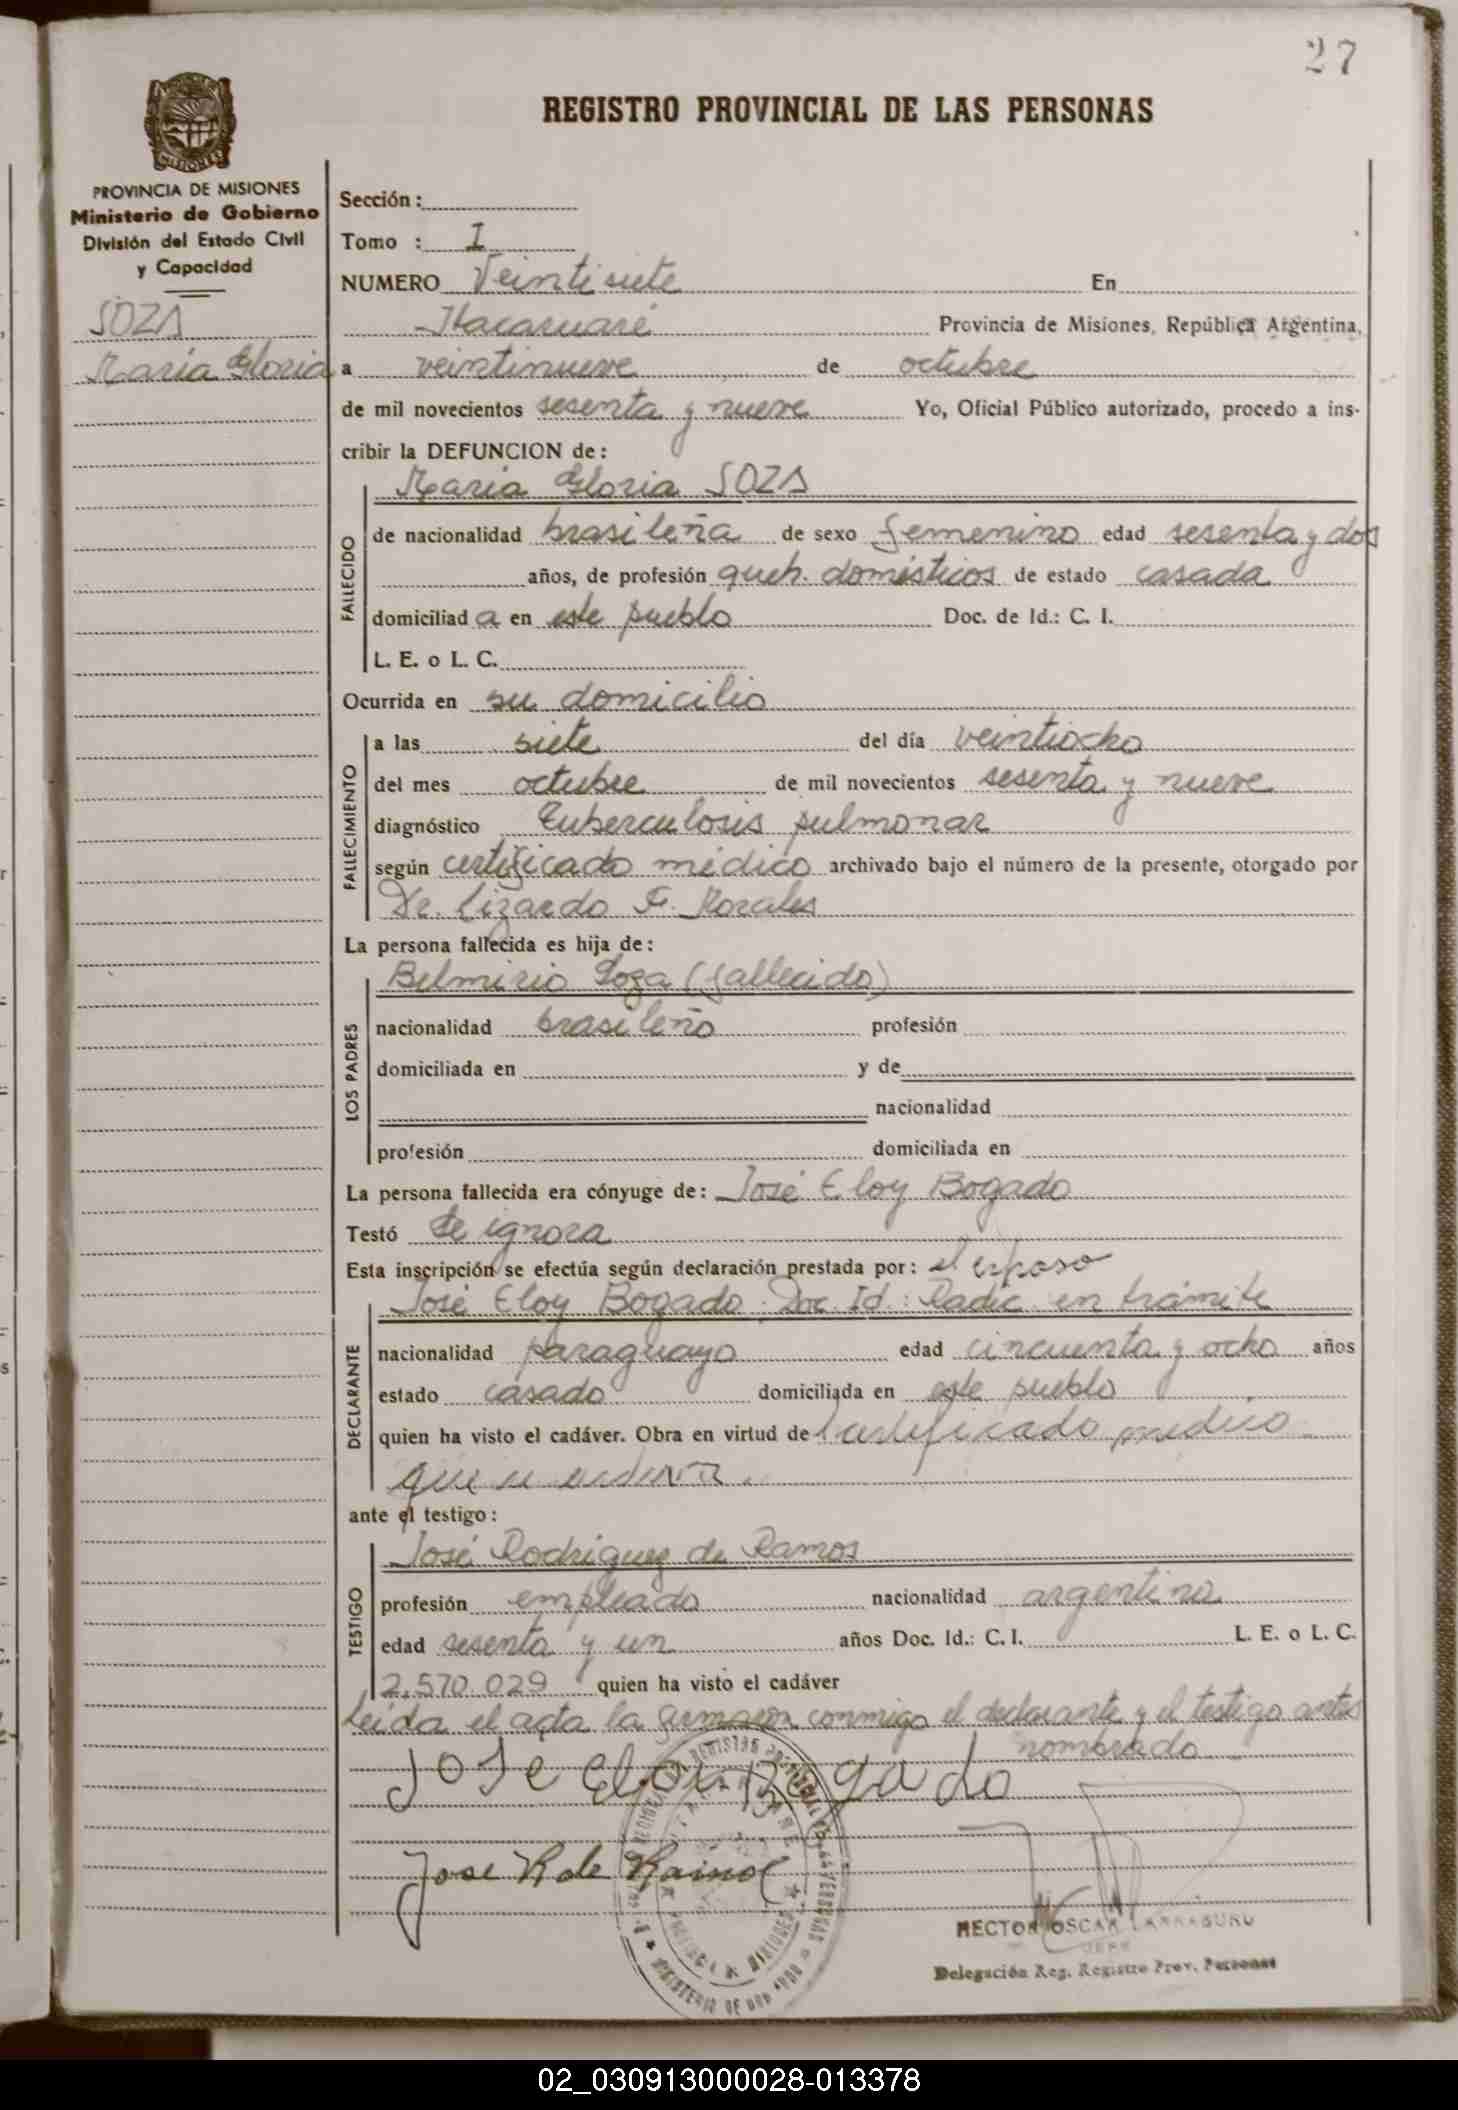 27
REGISTRO PROVINCIAL DE LAS PERSONAS
MISIONES
PROVINCIA DE MISIONES
Ministerio de Gobierno
División del Estado Civil
y Capacidad
SOZA
María Gloria
Sección:
Tomo : I
NUMERO Veintisiete En
Itacaruaré Provincia de Misiones, República Argentina,
a veintinueve de octubre
de mil novecientos sesenta y nueve Yo, Oficial Público autorizado, procedo a ins-
cribir la DEFUNCION de:
María Gloria SOZA
FALLECIDO
de nacionalidad brasileña de sexo femenino edad sesenta y dos
años, de profesión queh. domésticos de estado casada
domiciliad a en este pueblo Doc. de Id.: C. I.
L. E. o L. C.
Ocurrida en su domicilio
FALLECIMIENTO
a las siete del día veintiocho
del mes octubre de mil novecientos sesenta y nueve
diagnóstico Tuberculosis pulmonar
según certificado médico archivado bajo el número de la presente, otorgado por
Dr. Lizardo F. Morales
La persona fallecida es hija de:
LOS PADRES
Belmirio Soza (fallecido)
nacionalidad brasileño profesión
domiciliada en y de
nacionalidad
profesión domiciliada en
La persona fallecida era cónyuge de: José Eloy Bogado
Testó Se ignora
Esta inscripción se efectúa según declaración prestada por: el esposo
DECLARANTE
José Eloy Bogado. Doc. Id.: Radic. en trámite
nacionalidad paraguayo edad cincuenta y ocho años
estado casado domiciliada en este pueblo
quien ha visto el cadáver. Obra en virtud de certificado médico
que
ante el testigo:
TESTIGO
José Rodriguez de Ramos
profesión empleado nacionalidad argentina
edad sesenta y un años Doc. Id.: C. I. L. E. o L. C.
2.570.029 quien ha visto el cadáver
Leída el acta la firmaron conmigo el declarante y el testigo antes
nombrado
Jose Eloi Bogado
Jose R de Ramos
HECTOR OSCAR LARRABURU
JEFE
Delegación Reg. Registro Prov. Personas
02_030913000028-013378